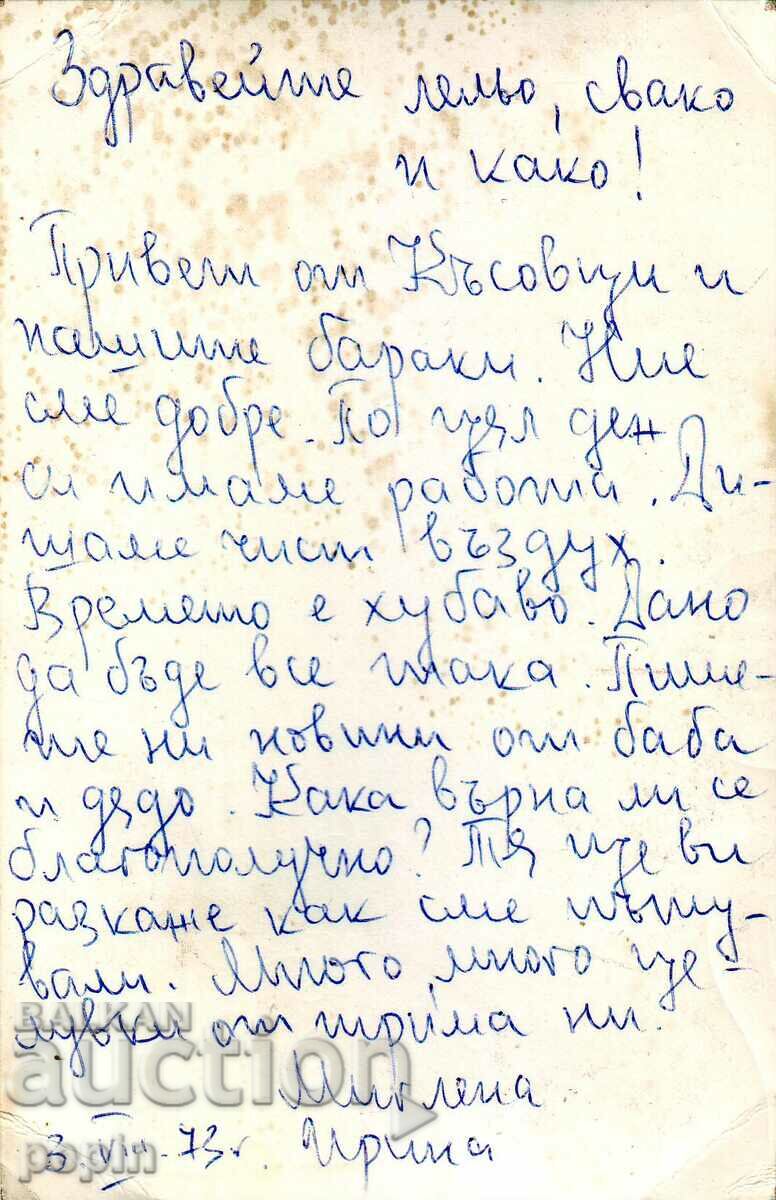 Здравейте лельо, свако
и како!
Привет от Късовци и
нашите бараки. Ние
сме добре. По цял ден
си имаме работа. Ди-
шаме чист въздух.
Времето е хубаво. Дано
да бъде все така. Пише-
те ни новини от баба
и дядо. Кака върна ли се
благополучно? Тя ще ви
разкаже как сме пъту-
вали. Много, много це-
лувки от трима ни.
Миглена
3.VIII.73г. Ирина
BALKAN
auction
popin